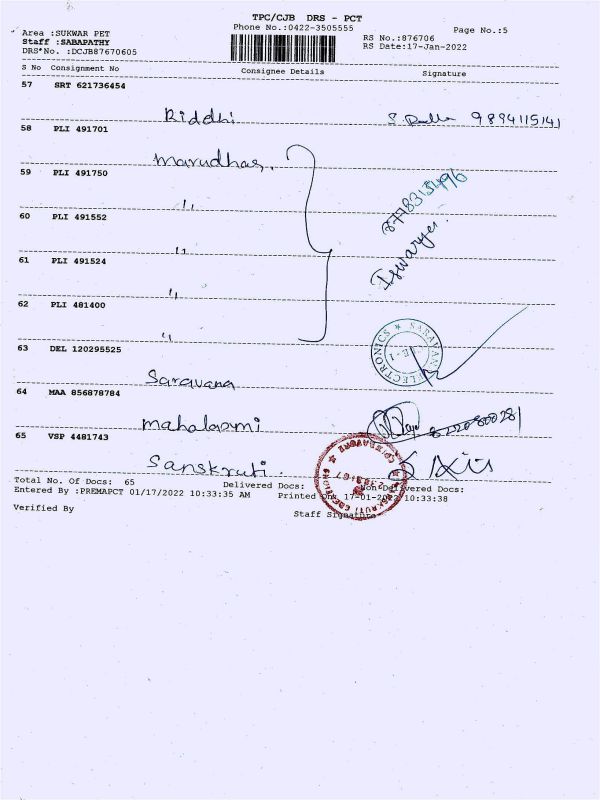 TPC/CJB DRS - PCT
Phone No.:0422-3505555
Page No.:5
Area :SUKWAR PET
Staff :SABAPATHY
DRS*No. :DCJB87670605
RS No.:876706
RS Date:17-Jan-2022
S No Consignment No Consignee Details Signature
57 SRT 621736454
Riddhi 9894115141
58 PLI 491701
Marudhar.
59 PLI 491750
"
60 PLI 491552
"
61 PLI 491524
"
62 PLI 481400
"
8778313496
Iswarya.
63 DEL 120295525
Saravana
SARAVANA ELECTRONICS
64 MAA 856878784
Mahalaxmi
65 VSP 4481743
Sanskruti.
COIMBATORE
Total No. Of Docs: 65 Delivered Docs: Non Delivered Docs:
Entered By :PREMAPCT 01/17/2022 10:33:35 AM Printed On: 17-01-2022 10:33:38
Verified By Staff Signature